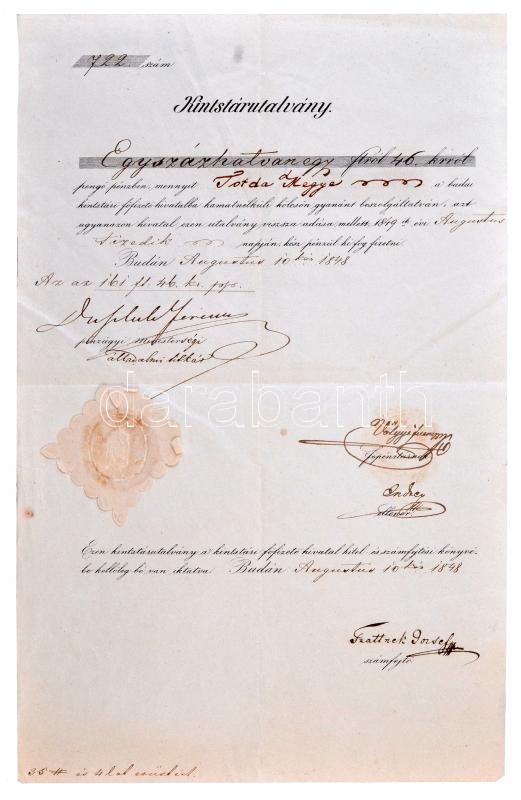 722. szám
Kintstárutalvány.
Egyszázhatvanegy ftról 46. krról
pengő pénzben, mennyit Torda Megye a' budai
kintstári főfizető hivatalba kamatnélküli kölcsön gyanánt beszolgáltatván, azt
ugyanazon hivatal ezen utalvány vissza adása mellett 1849ik évi Augustus
tizedik napján, kész pénzül ki fog fizetni.
Budán Augustus 10kén 1848
Az az 161 ft. 46. kr. pp.
Duschek Ferencz
pénzügyi ministerségi
álladalmi titkár
darabanth
www.darabanth.com
Völgyi
főpénztárnok
Endrey
ellenőr
Ezen kintstárutalvány a' kintstári főfizető hivatal hitel és számfejtési könyvé-
be kellőleg bé van iktatva. Budán Augustus 10kén 1848
József
számfejtő.
35 és 4 lat ezüstért.